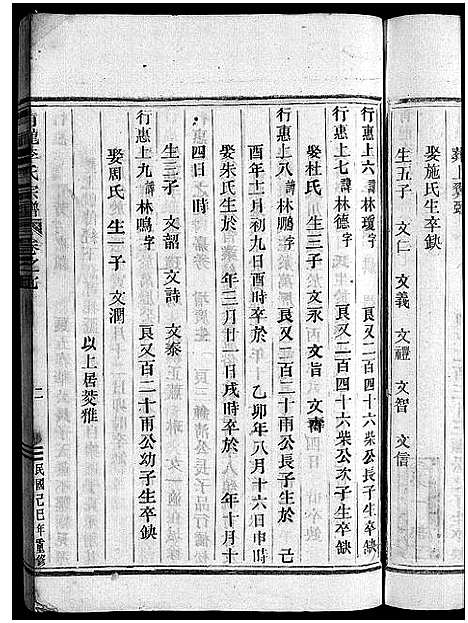 娶施氏生卒缺
生五子 文仁 文義 文禮 文智 文信
行惠上六諱林瓊字 良又二百四十六柴公長子生卒缺
行惠上七諱林德字 良又二百四十六柴公次子生卒缺
娶杜氏 生三子 文永 文旨 文壽
行惠上八諱林鵬字 良又二百二十雨公長子生於 己
酉年十二月初九日酉時卒於 乙卯年八月十六日申時
娶朱氏生於 年三月廿一日戌時卒於 年十月十
四日 時
生三子 文韶 文詩 文泰
行惠上九諱林鳴字 良又百二十雨公幼子生卒缺
娶周氏 生一子 文潤
以上居菱雅
龍李氏宗譜 卷之 二 民國己巳年重修